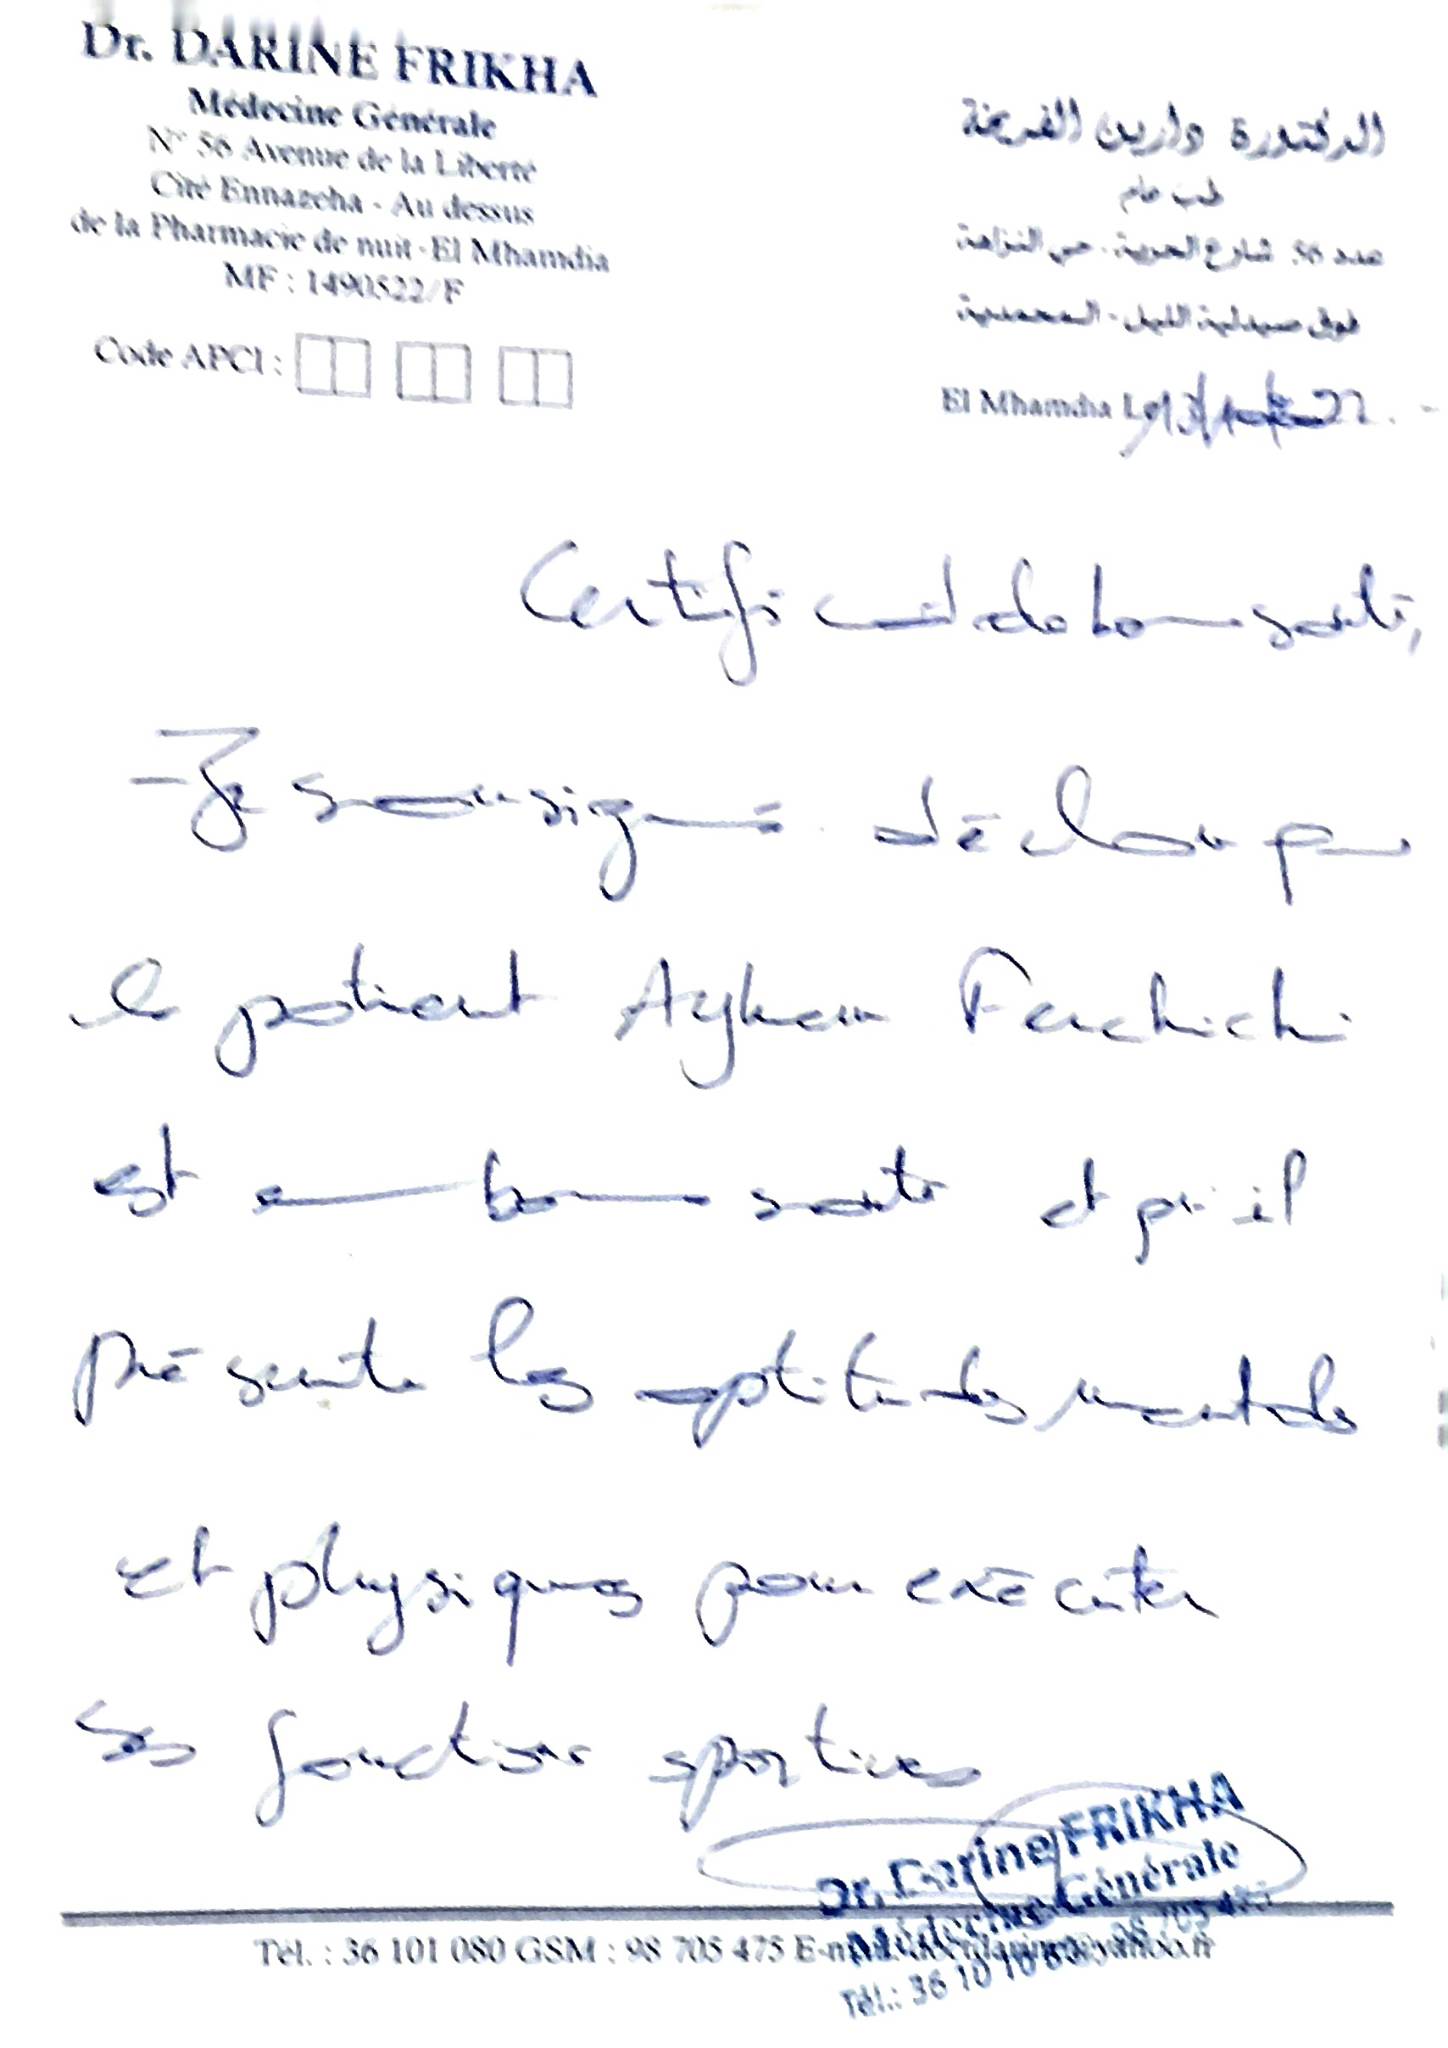 Dr. DARINE FRIKHA
Médecine Générale
N° 56 Avenue de la Liberté
Cité Ennazeha - Au dessus
de la Pharmacie de nuit - El Mhamdia
MF : 1490522/F
Code APCI :
الدكتورة دارين الفريخة
طب عام
عدد 56 شارع الحرية - حي النزاهة
فوق صيدلية الليل - المحمدية
El Mhamdia Le
Certificat de bonne santé,
- Je soussigné déclare que
le patient Ayhem Ferchichi
est en bonne santé et qu'il
présente les aptitudes mentales
et physiques pour exécuter
ses fonctions sportives
Dr. Darine FRIKHA
Médecine Générale
Tél.: 36 101 080 98 705 475
Tél. : 36 101 080 GSM : 98 705 475